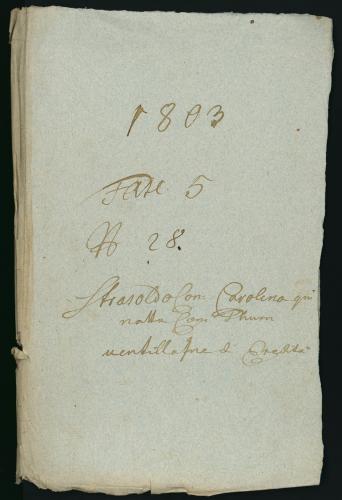 1803
Fasc 5
N 28.
Strasoldo Con. Carolina
natta Con. Thurn
ventillazne di Eredità